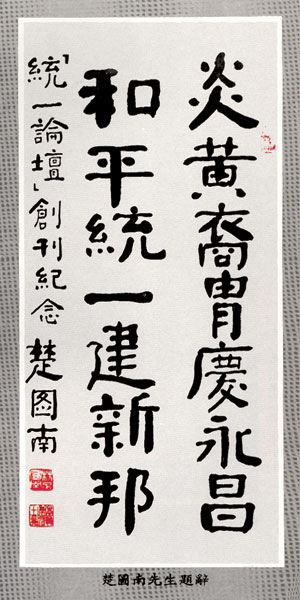 炎黃裔胄慶永昌
和平統一建新邦
「統一論壇」創刊紀念 楚圖南
楚圖南先生題辭